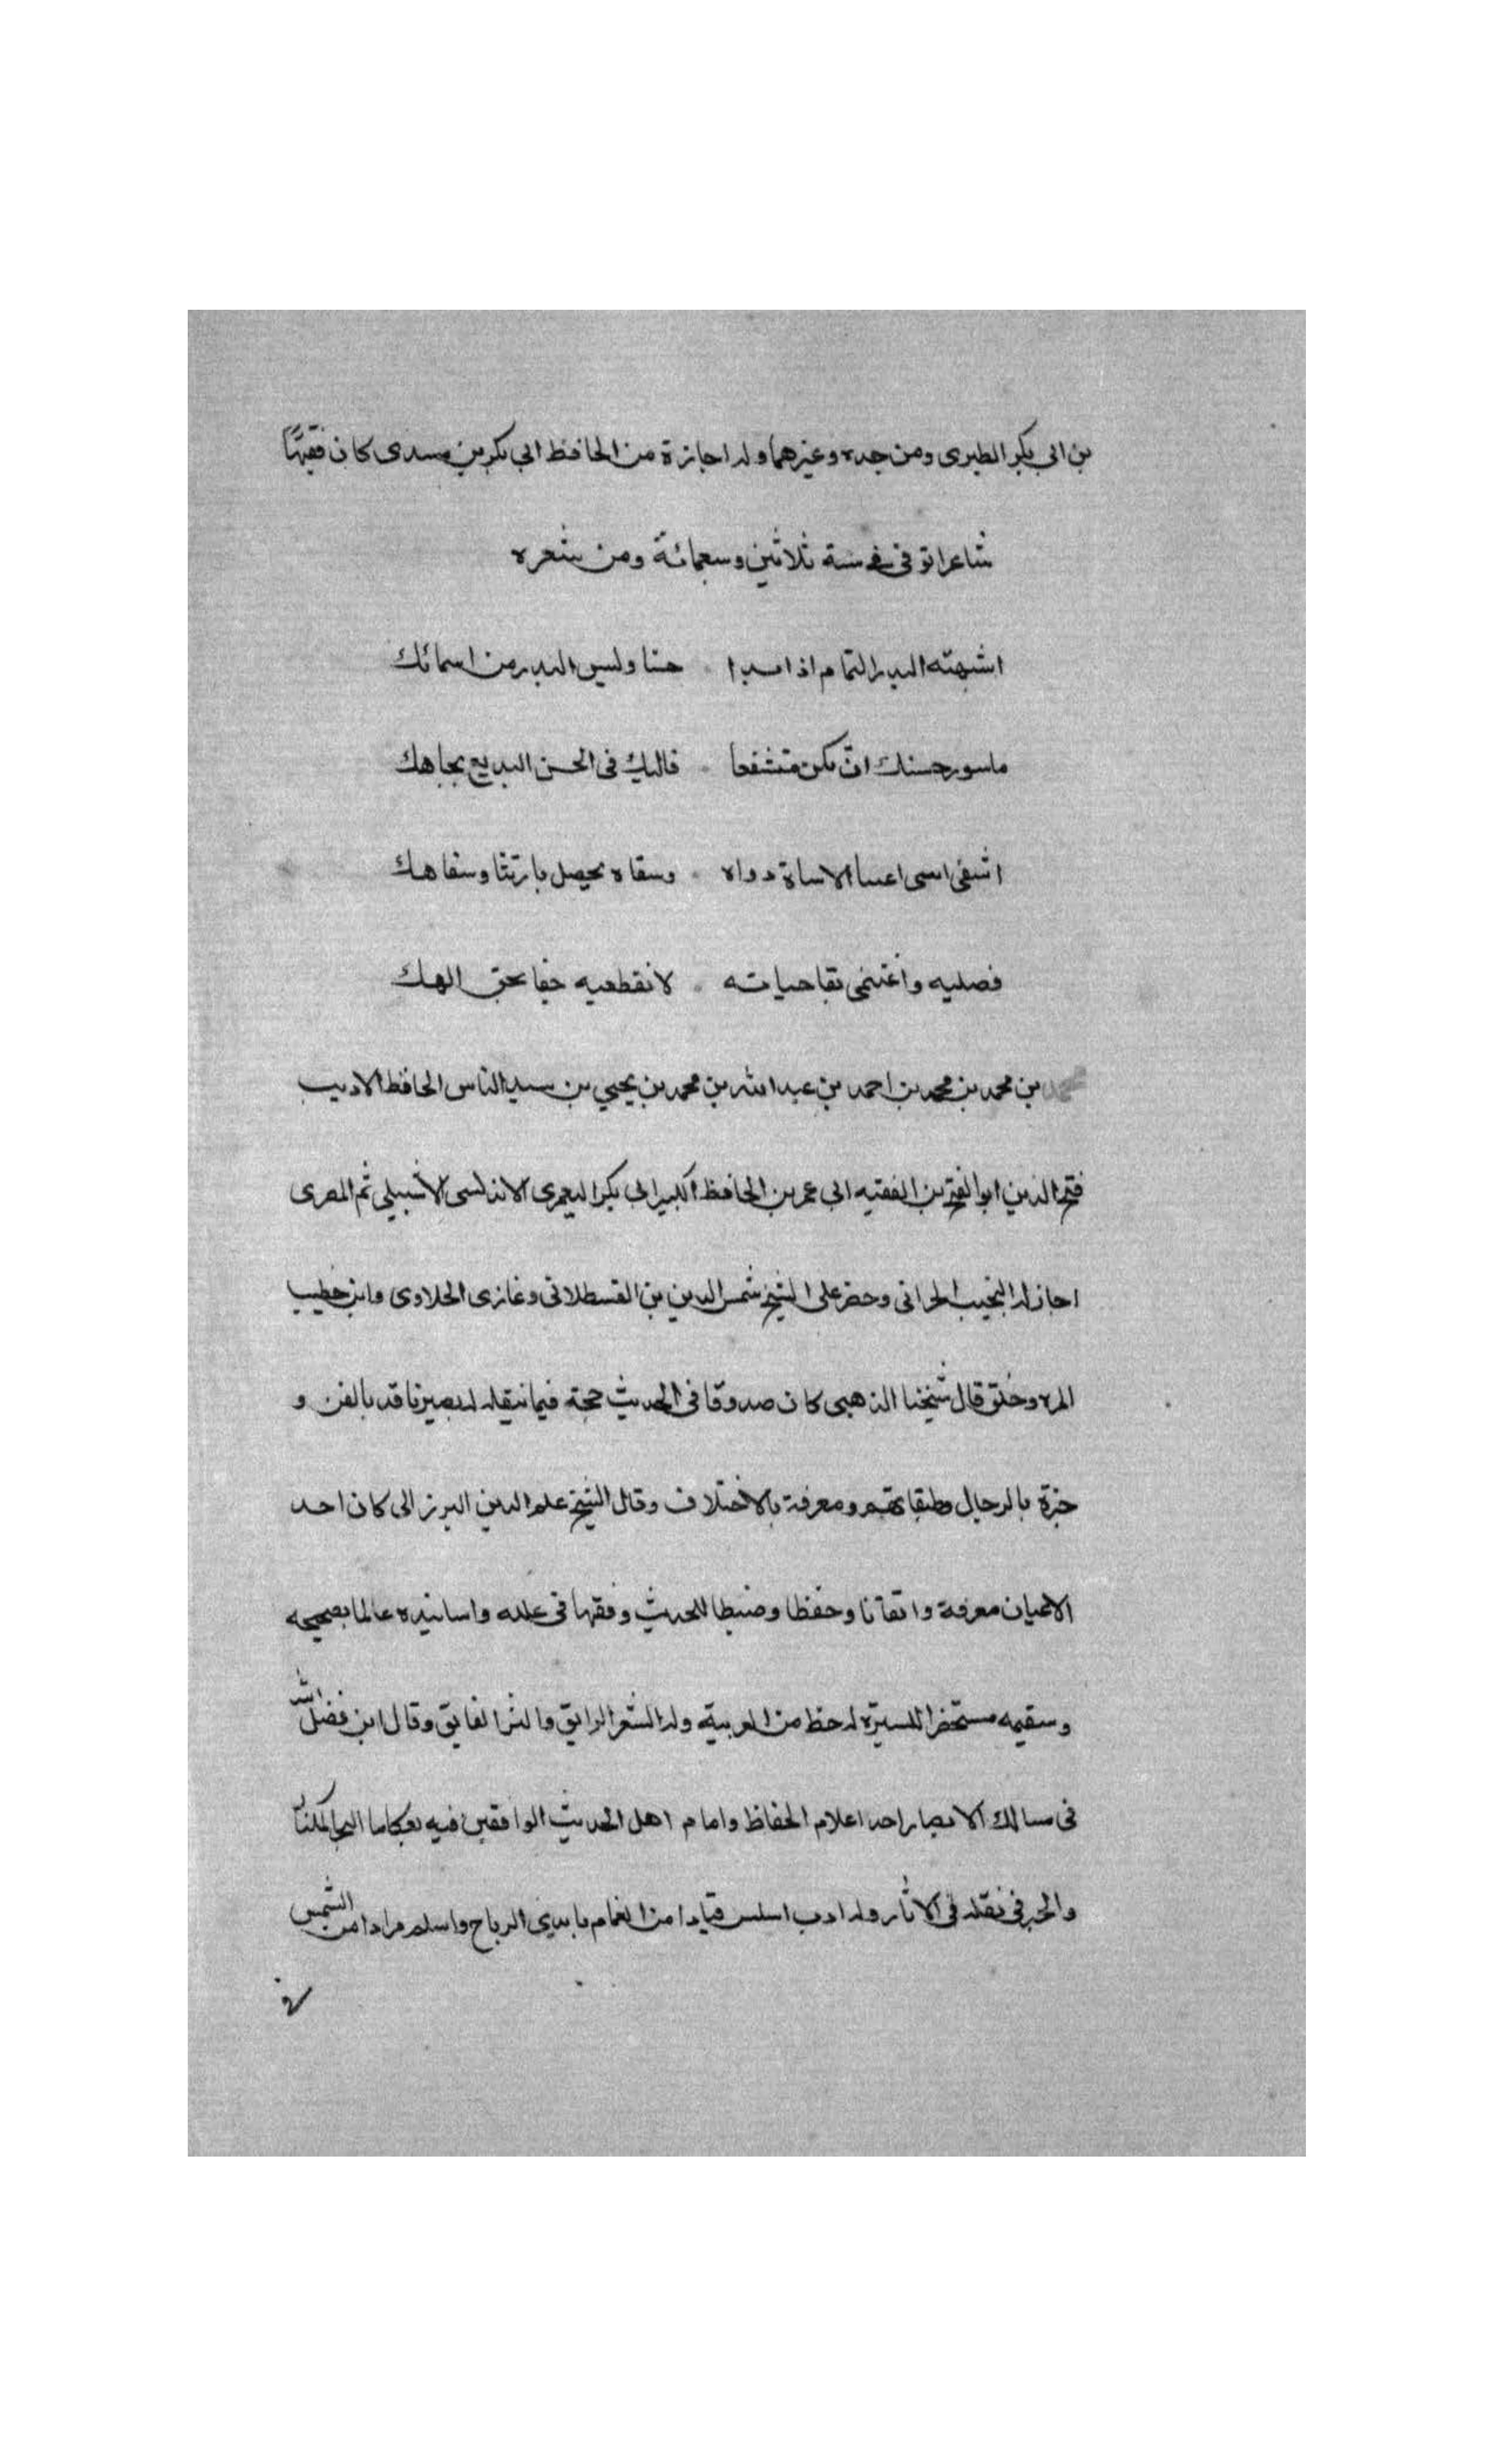 بن ابي بكر الطبرى ومن جده وغيرهما وله اجازة من الحافظ ابي بكر بن مسدى كان فقيهًا
شاعرا توفى فى سنة ثلاثين وسبعمائة ومن شعره
اشبهته البدر التمام اذا بدا حسنا وليس البدر من اسمائك
ماسور حسنك ان يكن متشفعا فاليك فى الحسن البديع بجاهك
اشفى اسى اعيا الاساة دواه وسقاه يحصل بارتشا وسفاهك
فصليه واغتنمى بقا حياته لا تقطعيه جفا بحق الهك
محمد بن محمد بن محمد بن احمد بن عبد الله بن محمد بن يحيى بن سيد الناس الحافظ الاديب
فتح الدين ابو الفتح بن الفقيه ابى عمر بن الحافظ الكبير ابى بكر اليعمرى الاندلسى الاشبيلى ثم المصرى
اجاز له النجيب الحرانى وحضر على الشيخ شمس الدين بن القسطلانى وغازى الحلاوى وابن خطيب
المزه وخلق قال شيخنا الذهبى كان صدوقا فى الحديث حجة فيما ينقله له بصير ناقد بالفن و
خبرة بالرجال وطبقاتهم ومعرفة بالاختلاف وقال الشيخ علم الدين البرزالى كان احد
الاعيان معرفة واتقانا وحفظا وضبطا للحديث وفقها فى علله واسانيده عالما بصحيحه
وسقيمه مستحضرا للسيرة له حظ من العربية وله الشعر الرايق والنثر الفايق وقال ابن فضل الله
فى مسالك الابصار احد اعلام الحفاظ وامام اهل الحديث الواقفين فيه بعكاظ البحر المكثار
والحبر فى نقله فى الاثار وله ادب اسلس قيادا من الغمام بايدى الرياح واسلم مرادا من الشمس
فى